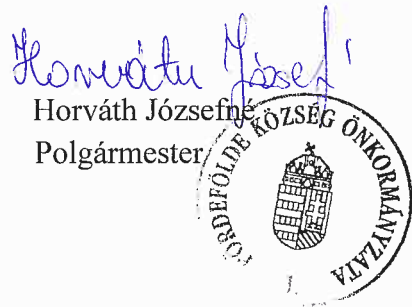 Horváth József
Horváth Józsefné
Polgármester
PÖRDEFÖLDE KÖZSÉG ÖNKORMÁNYZATA
1.